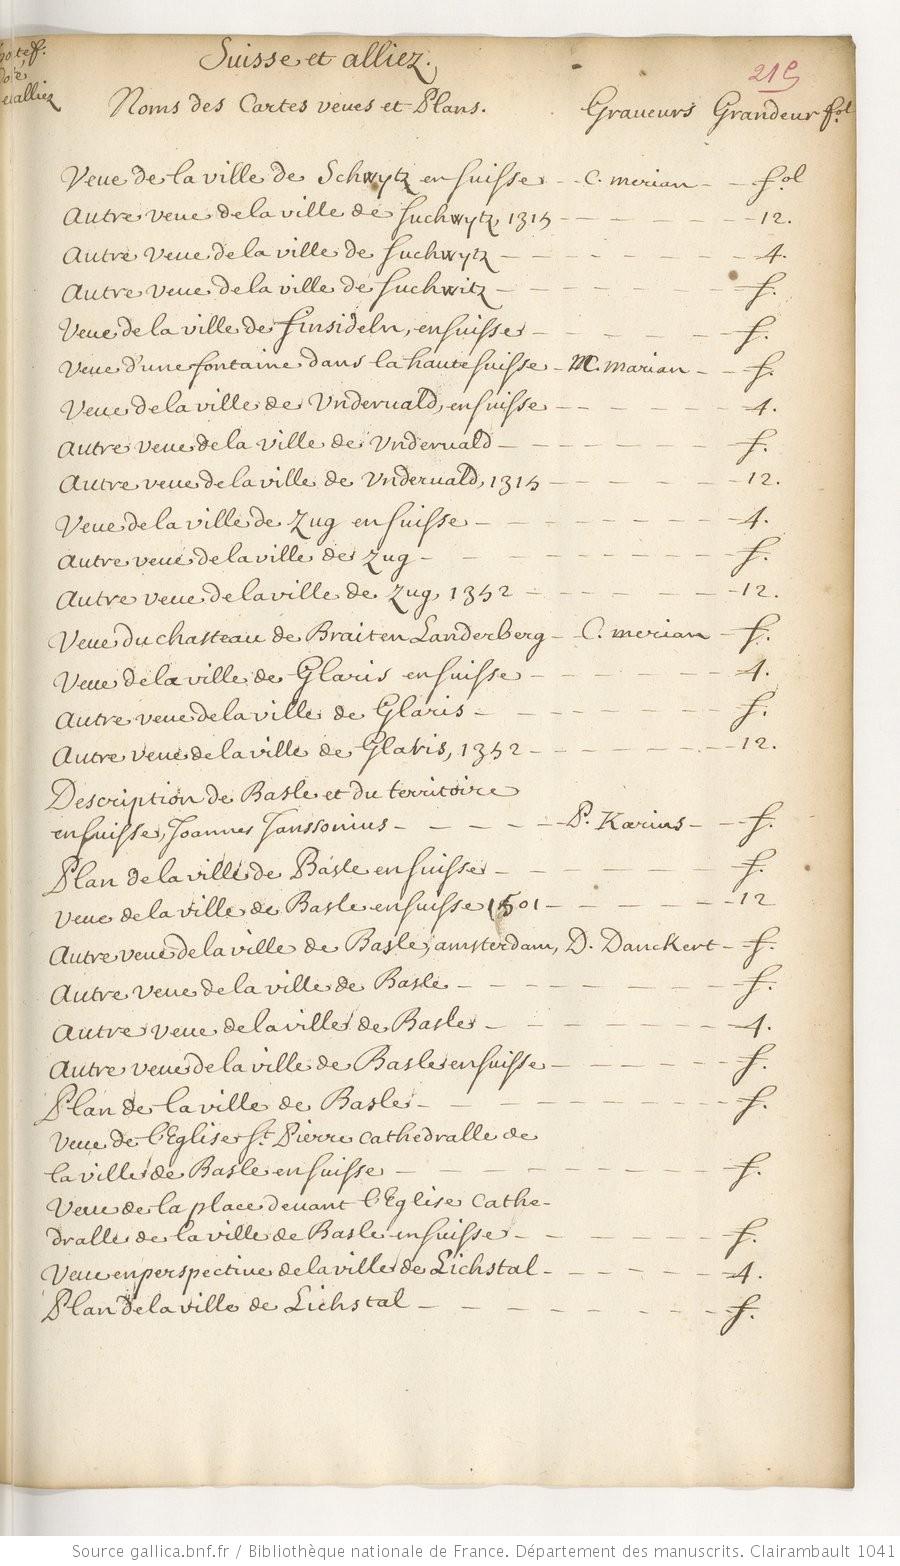 Suisse et alliez.
Noms des Cartes veues et Plans. Graveurs Grandeur fol
Veue de la ville de Schwytz en Suisse - - C. merian - - fol
Autre veue de la ville de Suchwytz, 1315 - - - - - - 12.
Autre veue de la ville de Suchwytz - - - - - - - 4.
Autre veue de la ville de Suchwitz - - - - - - - f.
Veue de la ville de Einsideln, en Suisse - - - - - - f.
Veue d'une fontaine dans la haute Suisse - M. marian - - f.
Veue de la ville de Vnderuald, en Suisse - - - - - - 4.
Autre veue de la ville de Vnderuald - - - - - - - f.
Autre veue de la ville de Vnderuald, 1315 - - - - - - 12.
Veue de la ville de Zug en Suisse - - - - - - - 4.
Autre veue de la ville de Zug - - - - - - - - f.
Autre veue de la ville de Zug, 1352 - - - - - - 12.
Veue du chasteau de Braiten Landerberg - C. merian - f.
Veue de la ville de Glaris en Suisse - - - - - - 4.
Autre veue de la ville de Glaris - - - - - - - f.
Autre veue de la ville de Glaris, 1352 - - - - - - 12.
Description de Basle et du territoire
en Suisse, Joannes Janssonius - - - - - P. Kærius - - f.
Plan de la ville de Basle en Suisse - - - - - - - f.
Veue de la ville de Basle en Suisse 1501 - - - - - - 12
Autre veue de la ville de Basle, amsterdam, D. Danckert - f.
Autre veue de la ville de Basle - - - - - - - - f.
Autre veue de la ville de Basle - - - - - - - 4.
Autre veue de la ville de Basle en Suisse - - - - - - f.
Plan de la ville de Basle - - - - - - - - f.
Veue de l'Eglise St. Pierre cathedralle de
la ville de Basle en Suisse - - - - - - - - f.
Veue de la place devant l'Eglise Cathe-
dralle de la ville de Basle en Suisse - - - - - - f.
Veue en perspective de la ville de Lichstal - - - - - - 4.
Plan de la ville de Lichstal - - - - - - - - f.
Source gallica.bnf.fr / Bibliothèque nationale de France. Département des manuscrits. Clairambault 1041